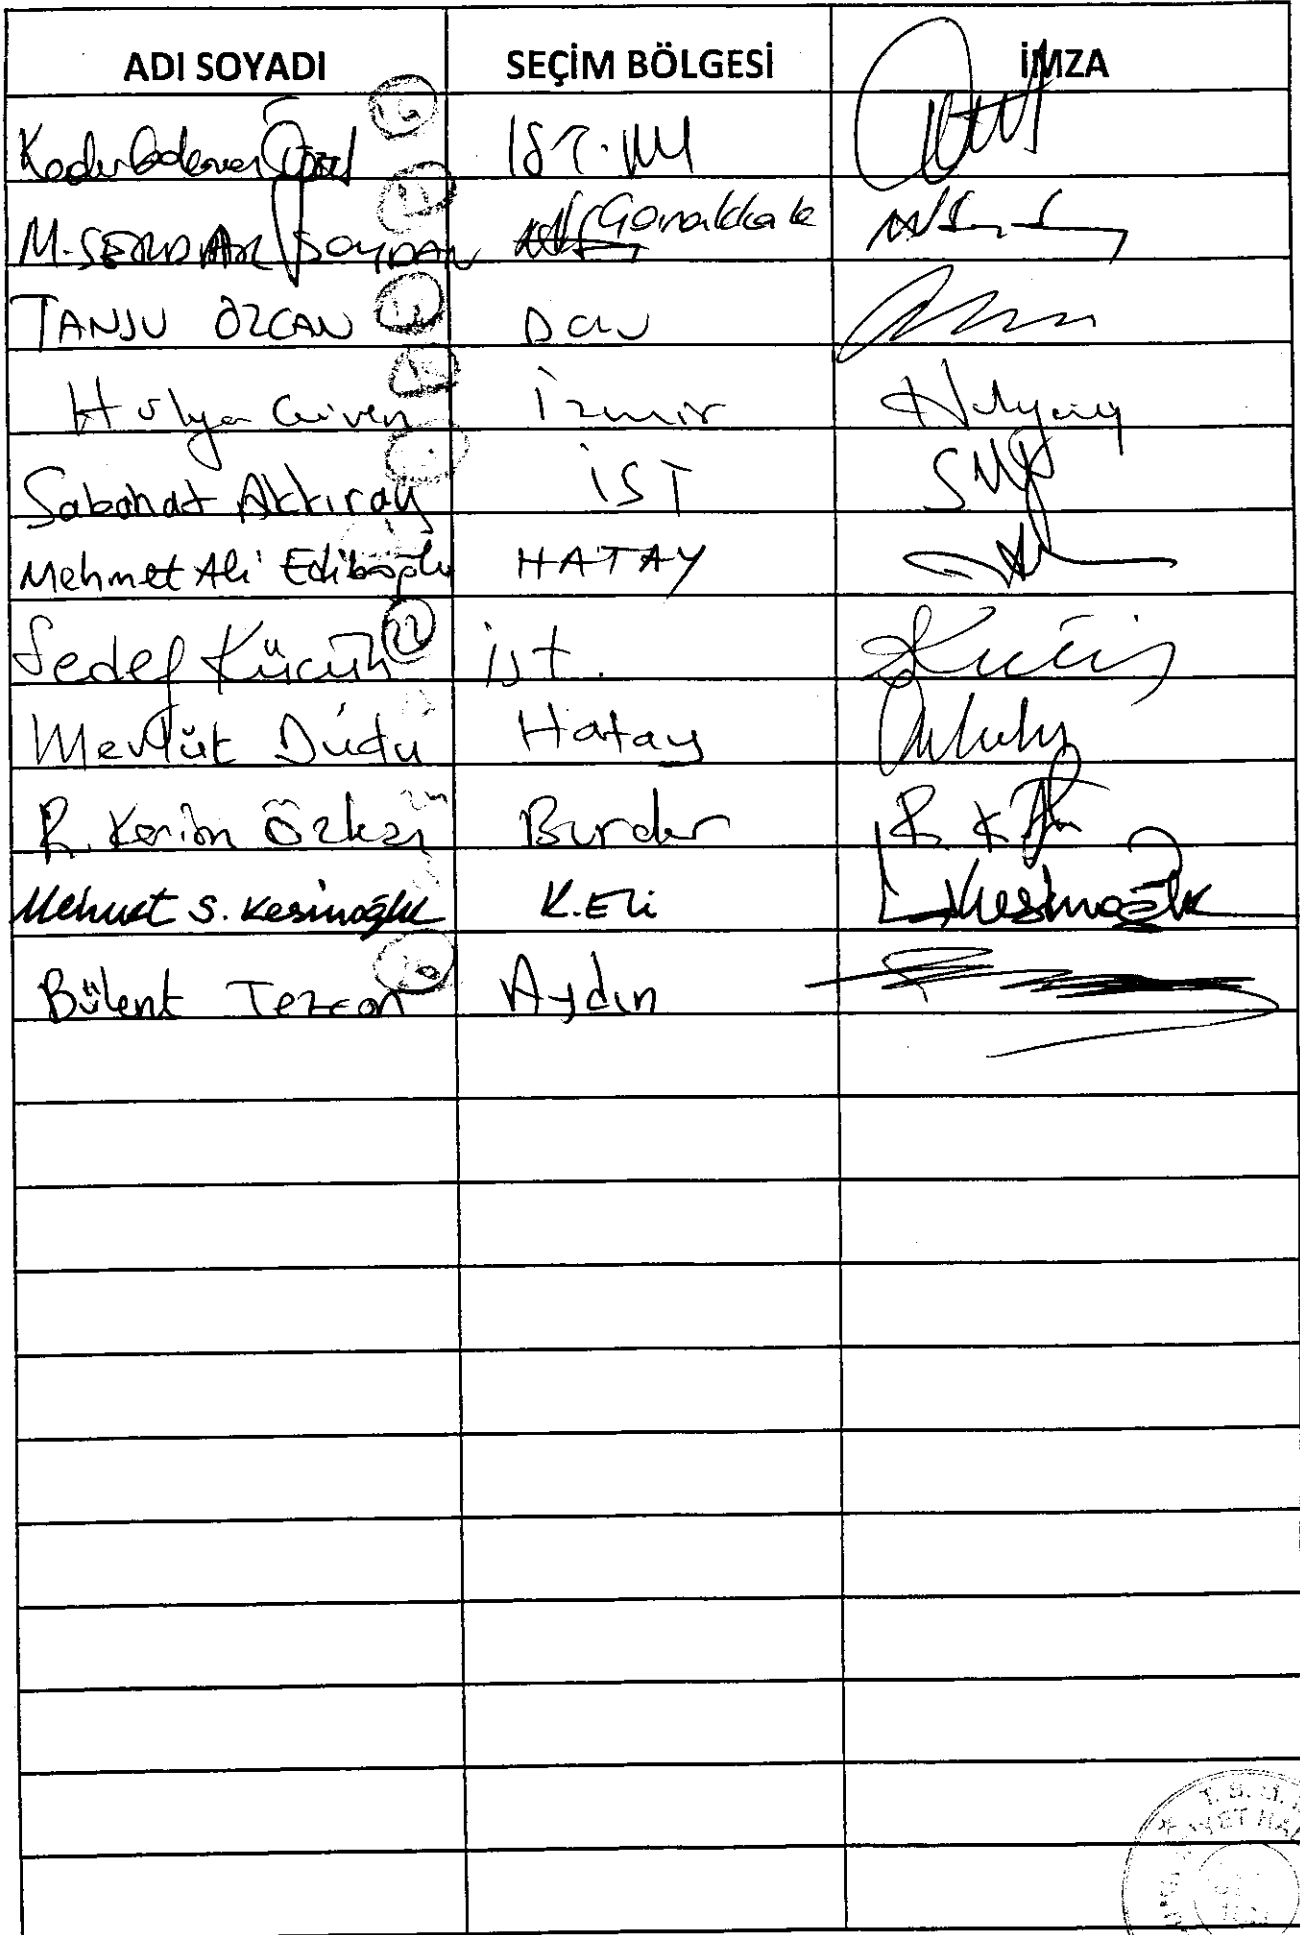 ADI SOYADI SEÇİM BÖLGESİ İMZA
16 İST.
M. SERDAR SOYDAN Çanakkale
TANJU ÖZCAN
Hülya Güven İzmir
Sabahat Akkıray İST
Mehmet Ali Ediboğlu HATAY
Sedef Küçük 22 ist.
Mevlüt Dudu Hatay
R. Kerim Özkan Burdur R. K
Mehmet S. Kesimoğlu K.Eli Kesimoğlu
Bülent Tezcan Aydın